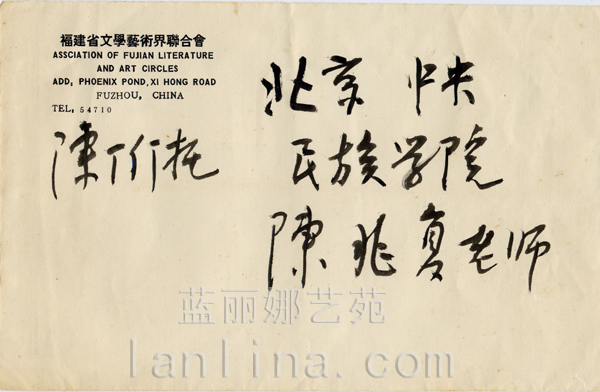 福建省文學藝術界聯合會
ASSCIATION OF FUJIAN LITERATURE
AND ART CIRCLES
ADD, PHOENIX POND, XI HONG ROAD
FUZHOU, CHINA
TEL, 54710
北京 中央
民族学院
陳兆复老师
陳 托
蓝丽娜艺苑
lanlina.com